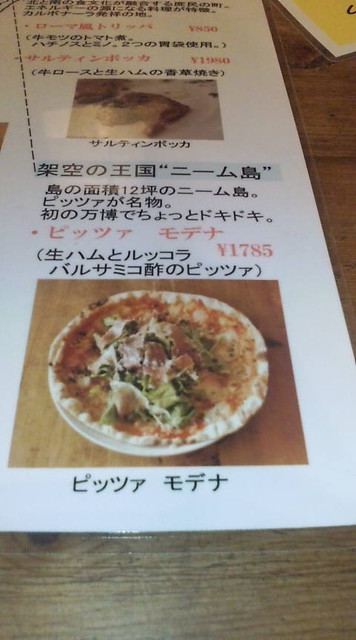 北と南の食文化が融合する庶民の町。
エネルギーの源になる料理が特徴。
カルボナーラ発祥の地。
・ローマ風トリッパ ¥850
(牛モツのトマト煮。
ハチノスとミノ。2つの胃袋使用。)
・サルティンボッカ ¥1980
(牛ロースと生ハムの香草焼き)
サルティンボッカ
架空の王国“ニーム島”
島の面積12坪のニーム島。
ピッツァが名物。
初の万博でちょっとドキドキ。
・ピッツァ モデナ
¥1785
(生ハムとルッコラ
バルサミコ酢のピッツァ)
ピッツァ モデナ